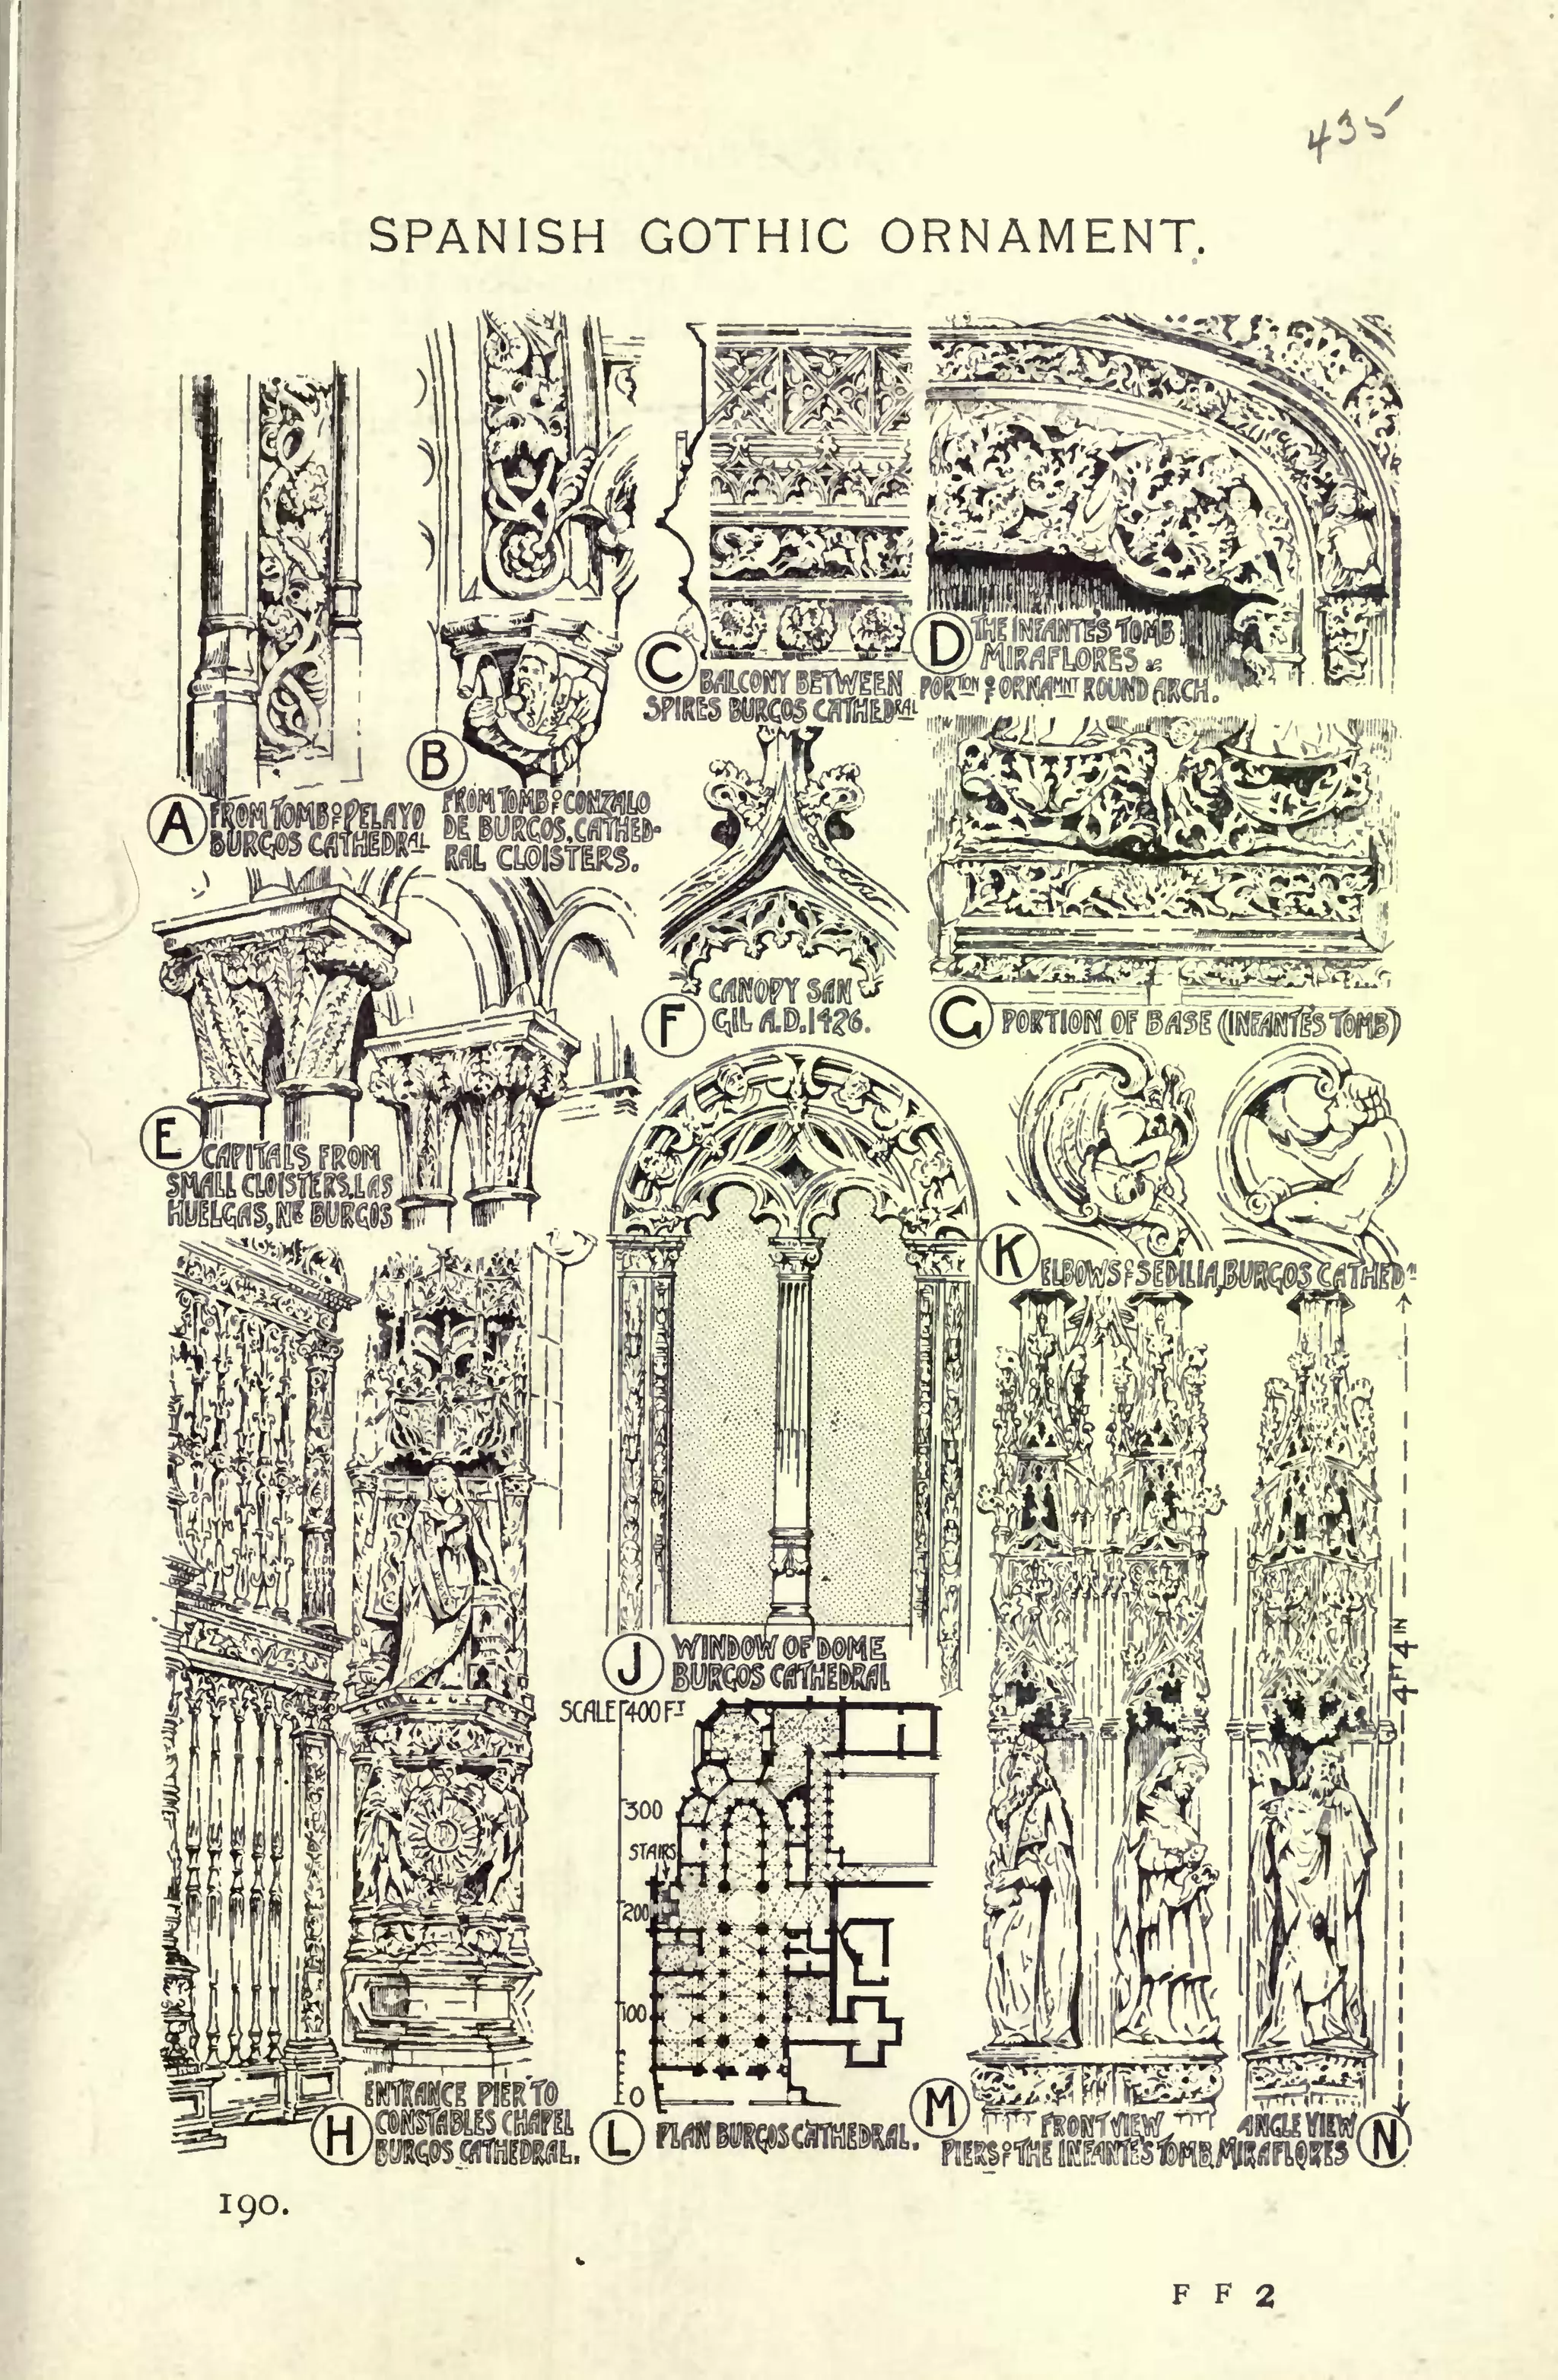 435
SPANISH GOTHIC ORNAMENT.
A
FROM TOMB OF PELAYO
BURGOS CATHEDRAL
B
FROM TOMB OF GONZALO
DE BURGOS, CATHED-
RAL CLOISTERS.
C
BALCONY BETWEEN
SPIRES BURGOS CATHEDRAL
D
THE INFANTE'S TOMB
MIRAFLORES
PORTION OF ORNAMNT ROUND ARCH.
E
CAPITALS FROM
SMALL CLOISTERS, LAS
HUELGAS, NR BURGOS
F
CANOPY SAN
GIL A.D. 1426.
G
PORTION OF BASE (INFANTE'S TOMB)
K
ELBOWS OF SEDILIA, BURGOS CATHEDL
J
WINDOW OF DOME
BURGOS CATHEDRAL
SCALE 400 FT
300
STAIRS
200
100
0
4FT 4IN
H
ENTRANCE PIER TO
CONSTABLES CHAPEL
BURGOS CATHEDRAL.
L
PLAN BURGOS CATHEDRAL.
M
FRONT VIEW
ANGLE VIEW
N
PIERS OF THE INFANTE'S TOMB, MIRAFLORES
190.
F F 2